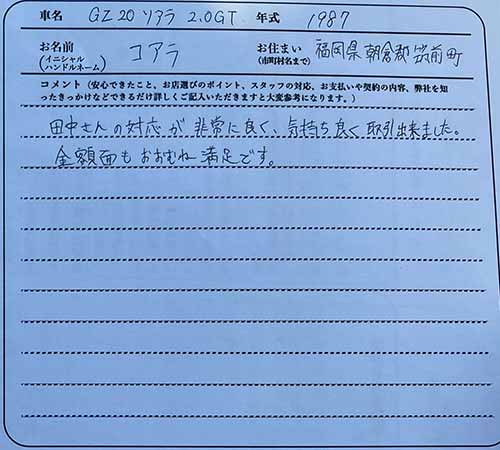 車名 GZ20 ソアラ 2.0GT 年式 1987
お名前 (イニシャル ハンドルネーム) コアラ お住まい (市町村名まで) 福岡県朝倉郡筑前町
コメント（安心できたこと、お店選びのポイント、スタッフの対応、お支払いや契約の内容、弊社を知
ったきっかけなどできるだけ詳しくご記入いただきますと大変参考になります。）
田中さんの対応が非常に良く、気持ち良く取引出来ました。
金額面もおおむね満足です。